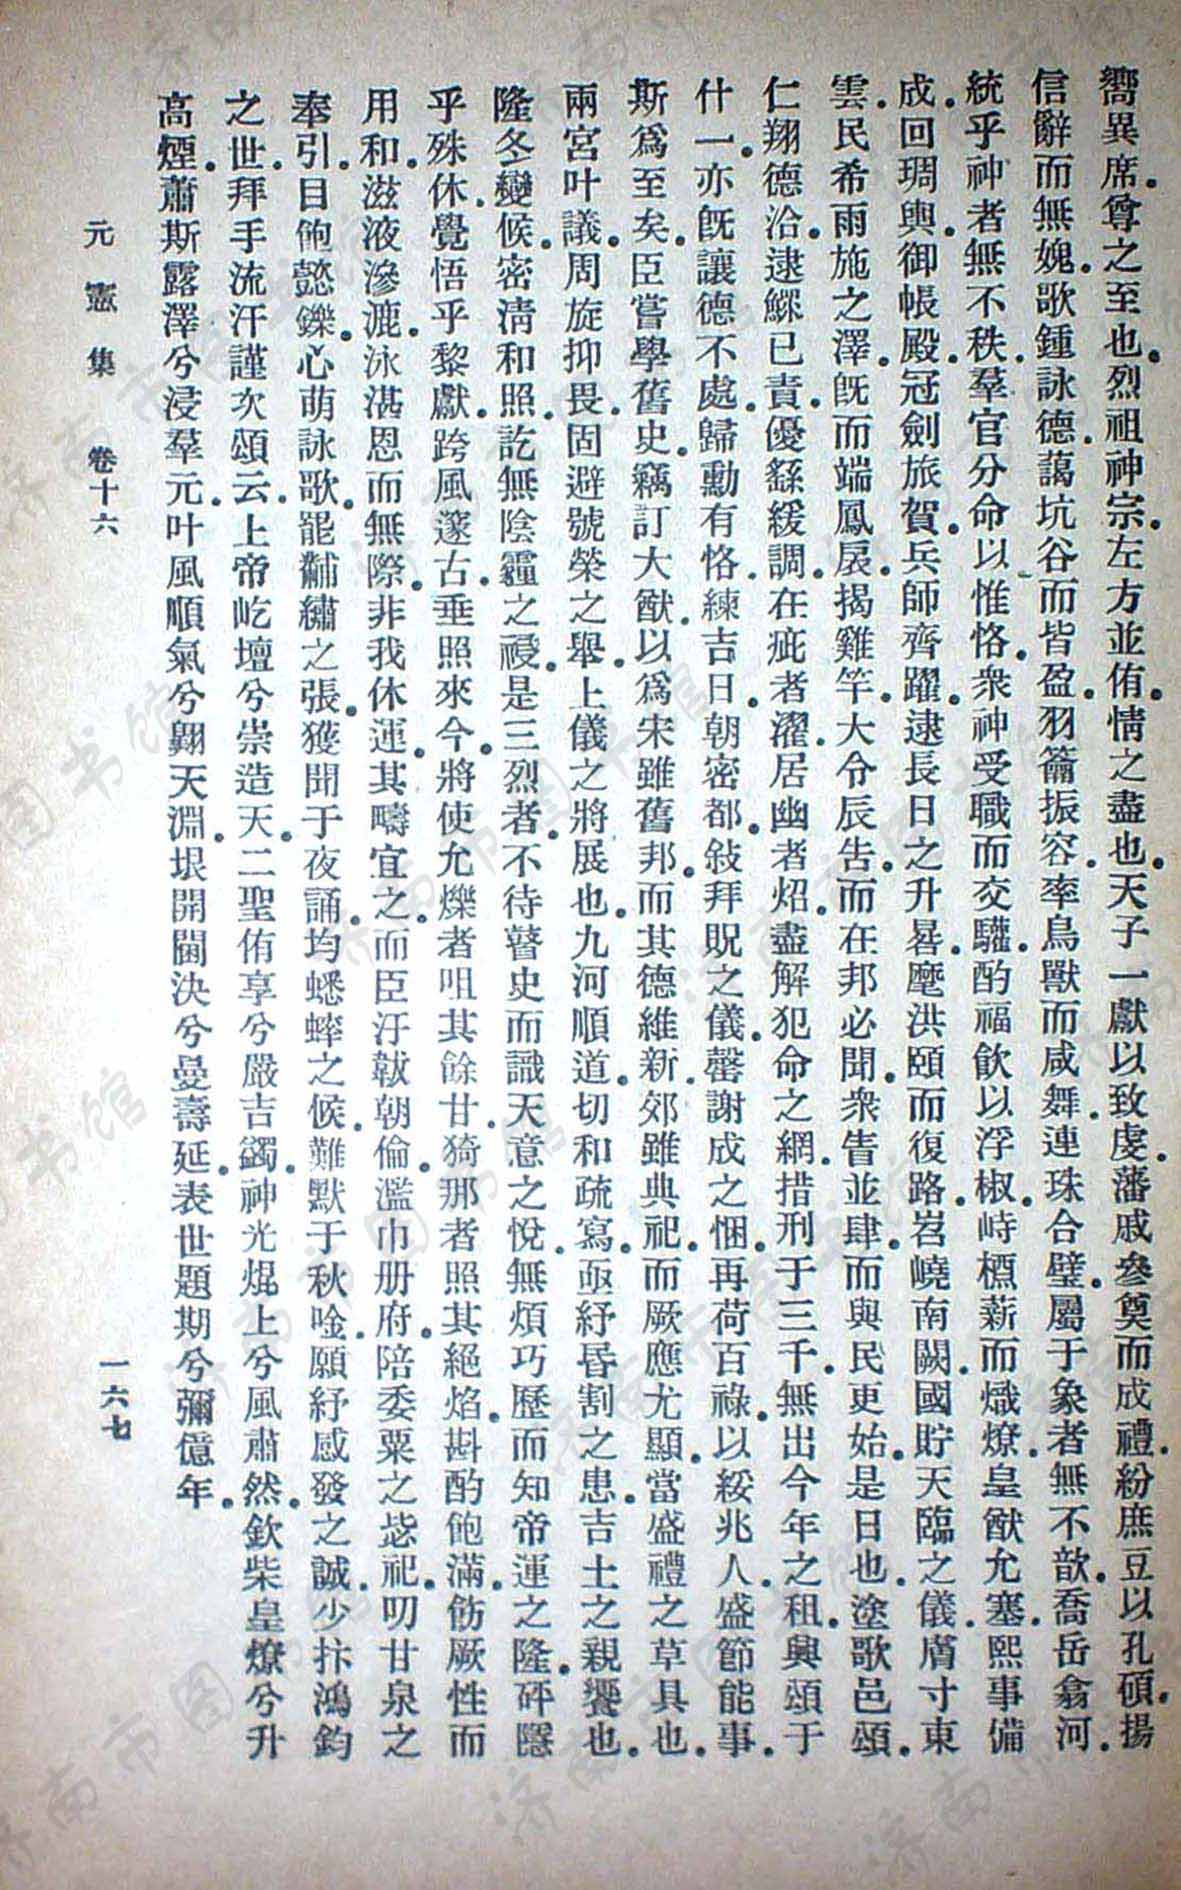 嚮異席。尊之至也。烈祖神宗。左方並侑。情之盡也。天子一獻以致虔。藩戚參奠而成禮。紛庶豆以孔碩。揚
信辭而無媿。歌鍾詠德。藹坑谷而皆盈。羽籥振容。率鳥獸而咸舞。連珠合璧。屬于象者無不歆。喬岳翕河。
統乎神者無不秩。羣官分命以惟恪。衆神受職而交驩。酌福飲以浮椒。峙標薪而熾燎。皇猷允塞。熙事備
成。回琱輿。御帳殿。冠劍旅賀。兵師齊躍。逮長日之升晷。麾洪頤而復路。岧嶢南闕。國貯天臨之儀。膚寸東
雲。民希雨施之澤。旣而端鳳扆。揭雞竿。大令辰告。而在邦必聞。衆眚並肆。而與民更始。是日也。塗歌邑頌。
仁翔德洽。逮鰥已責。優繇緩調。在疵者濯。居幽者炤。盡解犯命之網。措刑于三千。無出今年之租。興頌于
什一。亦旣讓德不處。歸勳有恪。練吉日。朝密都。敍拜貺之儀。罄謝成之悃。再荷百祿。以綏兆人。盛節能事。
斯爲至矣。臣嘗學舊史。竊訂大猷。以爲宋雖舊邦。而其德維新。郊雖典祀。而厥應尤顯。當盛禮之草具也。
兩宮叶議。周旋抑畏。固避號榮之舉。上儀之將展也。九河順道。切和疏寫。亟紓昬割之患。吉土之親饗也。
隆冬變候。密淸和照。訖無陰霾之祲。是三烈者。不待瞽史而識天意之悅。無煩巧歷而知帝運之隆。砰隱
乎殊休。覺悟乎黎獻。跨風邃古。垂照來今。將使允爍者咀其餘甘。猗那者照其絕焰。斟酌飽滿。飭厥性而
用和。滋液滲漉。泳湛恩而無際。非我休運。其疇宜之。而臣汙韍朝倫。濫巾册府。陪委粟之毖祀。叨甘泉之
奉引。目飽懿鑠。心萌詠歌。罷黼繡之張。獲聞于夜誦。均蟋蟀之候。難默于秋唫。願紓感發之誠。少抃鴻鈞
之世。拜手流汗。謹次頌云。上帝屹壇兮崇造天。二聖侑享兮嚴吉蠲。神光焜上兮風肅然。欽柴皇燎兮升
高煙。蕭斯露澤兮浸羣元。叶風順氣兮翺天淵。垠開闓決兮曼壽延。表世題期兮彌億年。
元憲集　卷十六　一六七